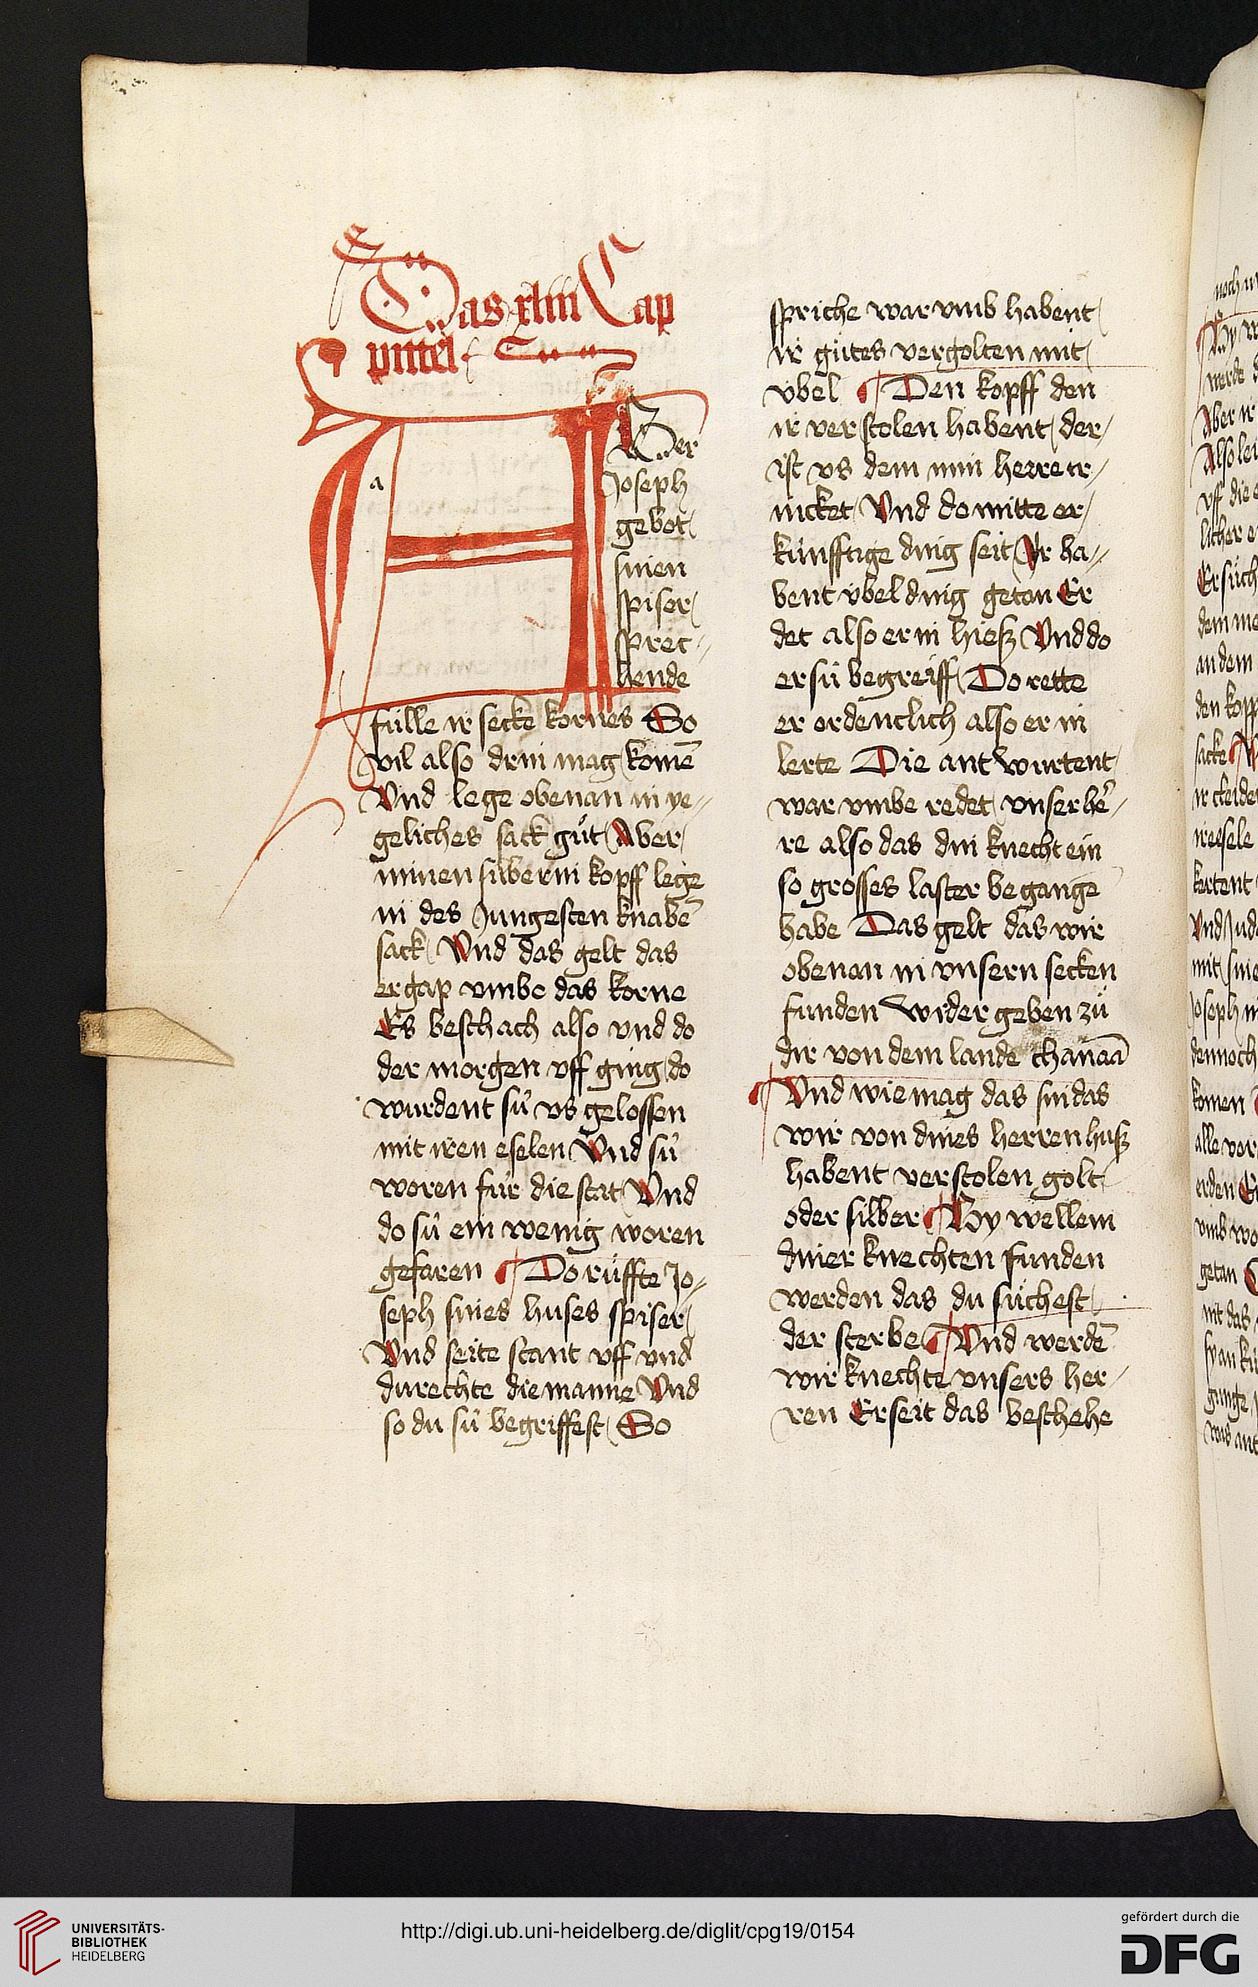 Das xliiii Cap
pittel
a
ABer
Joseph
gebot
sinen
spiser
sprec-
hende
fülle ir secke kornes So
vil also drin mag komē
Vnd lege obenan in ye-
geliches sack güt Aber
minen silberin kopff lege
in des Jungesten knabē
sack Vnd das gelt das
er gap vmbe das korne
Es beschach also vnd do
der morgen vff ging do
wurdent sü vs gelossen
mit iren eselen Vnd sü
woren für die stat Vnd
do sü ein wenig woren
gefaren Do rüffte Jo-
seph sines huses spiser
Vnd seite stant vff vnd
durechte die manne Vnd
so du sü begriffest So
spriche war vmb habent
ir gütes vergolten mit
übel Den kopff den
ir verstolen habent der
ist vs dem min herre tr-
incket Vnd do mitte er
künfftige ding seit Ir ha-
bent übel ding geton Er
det also er in hiesz Vnd do
er sü begreiff Do rette
er ordenclich also er in
lerte Die antwurtent
war vmbe redet vnser hē-
re also das din knecht ein
so grosses laster begange
habe Das gelt das wir
obenan in vnsern secken
funden wider geben zü
dir von dem lande chanaā
Vnd wie mag das sin das
wir von dines herren husz
habent verstolen golt
oder silber By wellem
diner knechten funden
werden das du süchest
der sterbe Vnd werdē
wir knechte vnsers her-
ren Er seit das beschehe
UNIVERSITÄTS-
BIBLIOTHEK
HEIDELBERG
http://digi.ub.uni-heidelberg.de/diglit/cpg19/0154
gefördert durch die
DFG